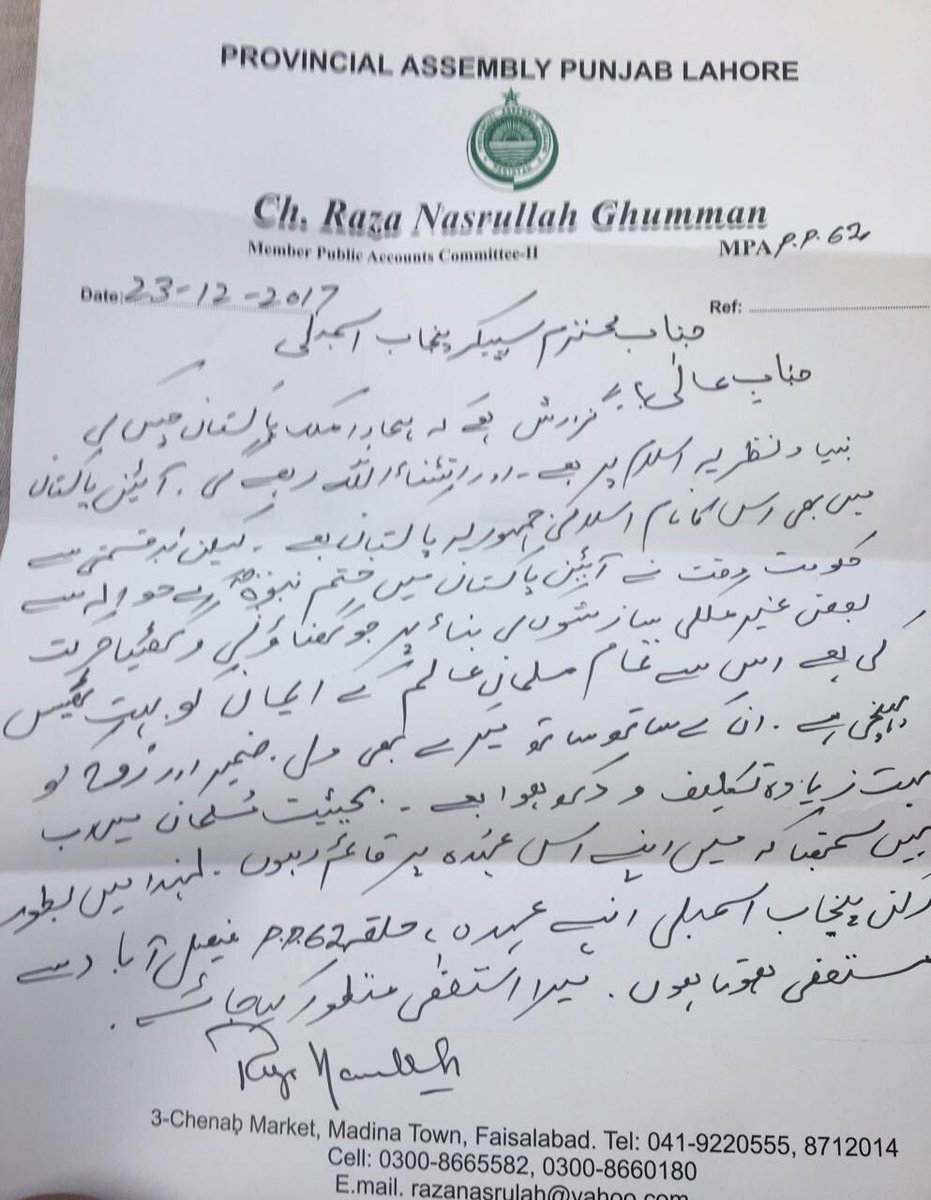 PROVINCIAL ASSEMBLY PUNJAB LAHORE
Ch. Raza Nasrullah Ghumman
Member Public Accounts Committee-II
MPA P.P. 62
Date: 23-12-2017
Ref:
جناب محترم سپیکر پنجاب اسمبلی
جناب عالی!
گزارش ہے کہ ہمارا ملک پاکستان جس کی
بنیاد نظریہ اسلام پر ہے۔ اور انشاء اللہ رہے گی۔ آئین پاکستان
میں بھی اس کا نام اسلامی جمہوریہ پاکستان ہے۔ لیکن بدقسمتی سے
حکومت وقت نے آئین پاکستان میں ختم نبوۃ کے حوالہ سے
بعض غیر ملکی سازشوں کی بناء پر جو گھناؤنی و گھٹیا حرکت
کی ہے اس سے تمام مسلمان عالم کے ایمان کو بہت ٹھیس
پہنچی ہے۔ ان کے ساتھ ساتھ میرے بھی دل، ضمیر اور روح کو
بہت زیادہ تکلیف و دکھ ہوا ہے۔ بحیثیت مسلمان میں اب
نہیں سمجھتا کہ میں اپنے اس عہدہ پر قائم رہوں۔ لہذا میں بطور
رکن پنجاب اسمبلی اپنے عہدہ، حلقہ P.P.62 فیصل آباد سے
مستعفی ہوتا ہوں۔ میرا استعفی منظور کیا جائے۔
3-Chenab Market, Madina Town, Faisalabad. Tel: 041-9220555, 8712014
Cell: 0300-8665582, 0300-8660180
E.mail. razanasrulah@yahoo.com